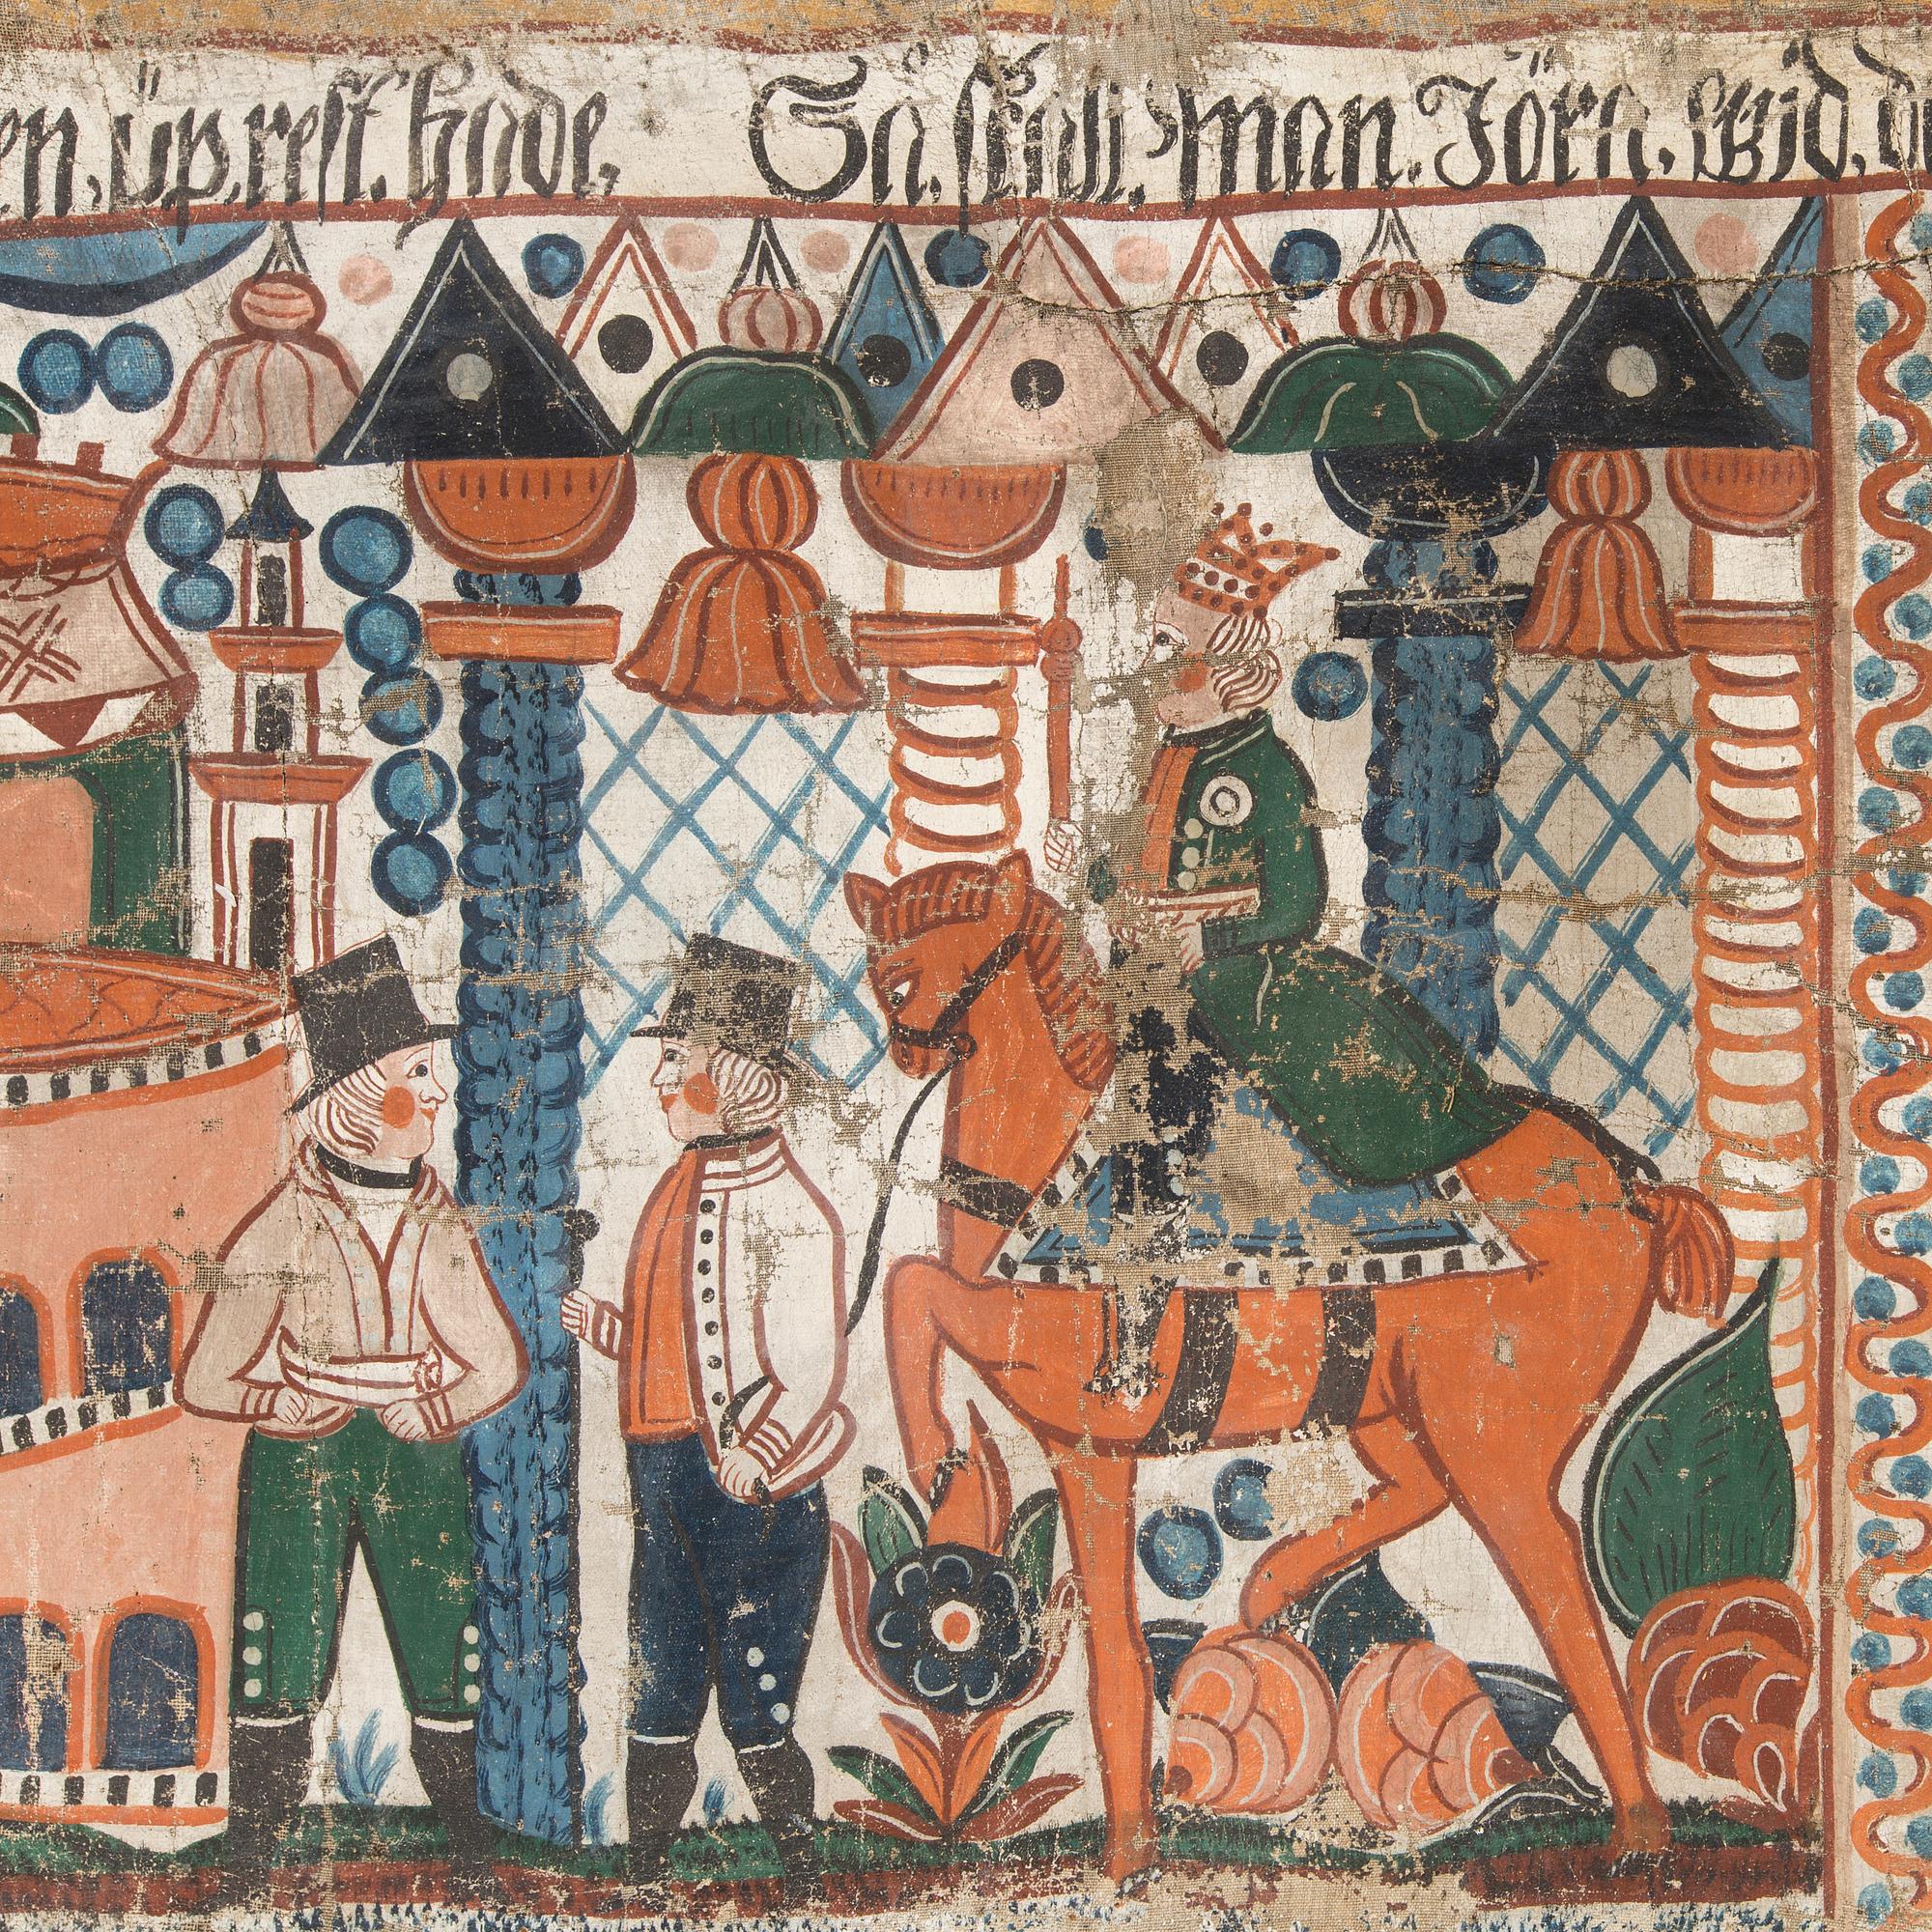 en, üp,rest, hade, Så, skall, man. Jörn. Wid, d